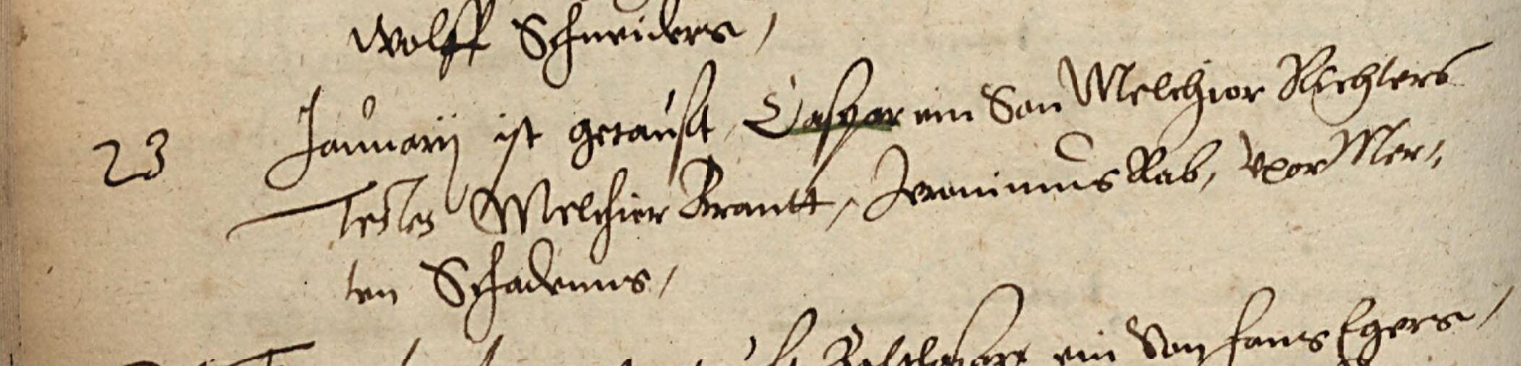 Wolff Schneiders /
23 Januarij ist getaufft Caspar ein Son Melchior Richters
Testes Melchior Krantt, Jeronimus Rab, vxor Mer,
ten Schadenns /
ein Son Hans Egers /